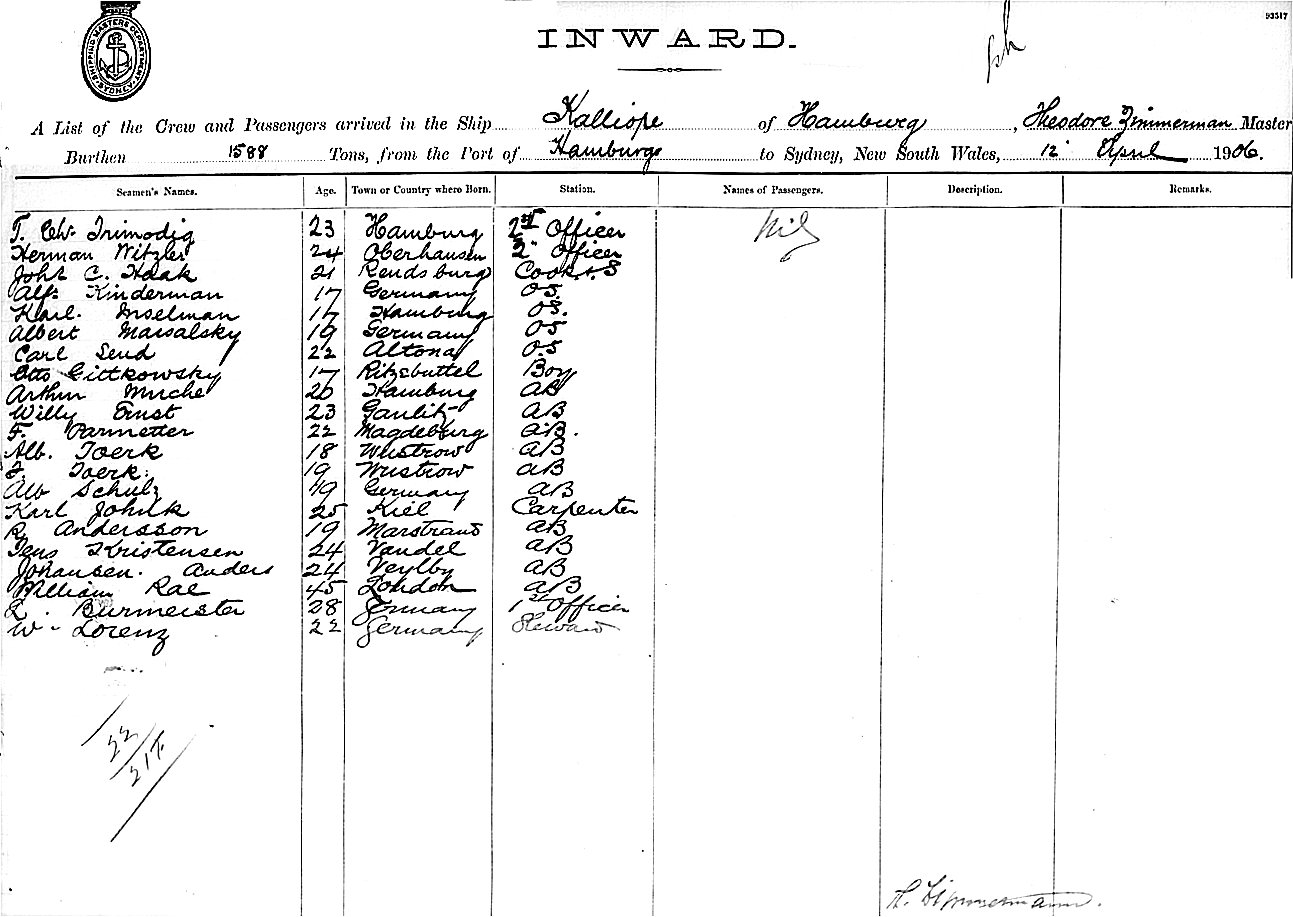 93517
SHIPPING MASTERS DEPARTMENT SYDNEY
INWARD.
A List of the Crew and Passengers arrived in the Ship Kalliope of Hamburg, Theodore Zimmerman Master
Burthen 1588 Tons, from the Port of Hamburg to Sydney, New South Wales, 12" April 1906.
Seamen's Names. Age. Town or Country where Born. Station. Names of Passengers. Description. Remarks.
T. Chr. Trimodig 23 Hamburg Officer Nil
Herman Witzler 24 Oberhausen 2" Officer
Joht C. Haak 21 Rendsburg Cook & S
Alf. Kinderman 17 Germany OS.
Karl. Inselman 17 Hamburg OS.
Albert Marsalsky 19 Germany OS
Carl Send 22 Altona O.S
Otto Gittkowsky 17 Ritzebuttel Boy
Arthur Muche 20 Hamburg AB
Willy Ernst 23 Gaulitz AB
F. Parmetter 22 Magdeburg AB.
Alb. Toerk 18 Wustrow AB
F. Toerk. 19 Wustrow AB
Alb Schulz 19 Germany AB
Karl Johnk 25 Kiel Carpenter
R. Andersson 19 Marstrand AB
Jens Kristensen 24 Vandel AB
Johansen. Anders 24 Veylby AB
William Rae 45 London AB
Burmeister 28 Germany 1st Officer
W. Lorenz 22 Germany Steward
22
21
H. Zimmermann.